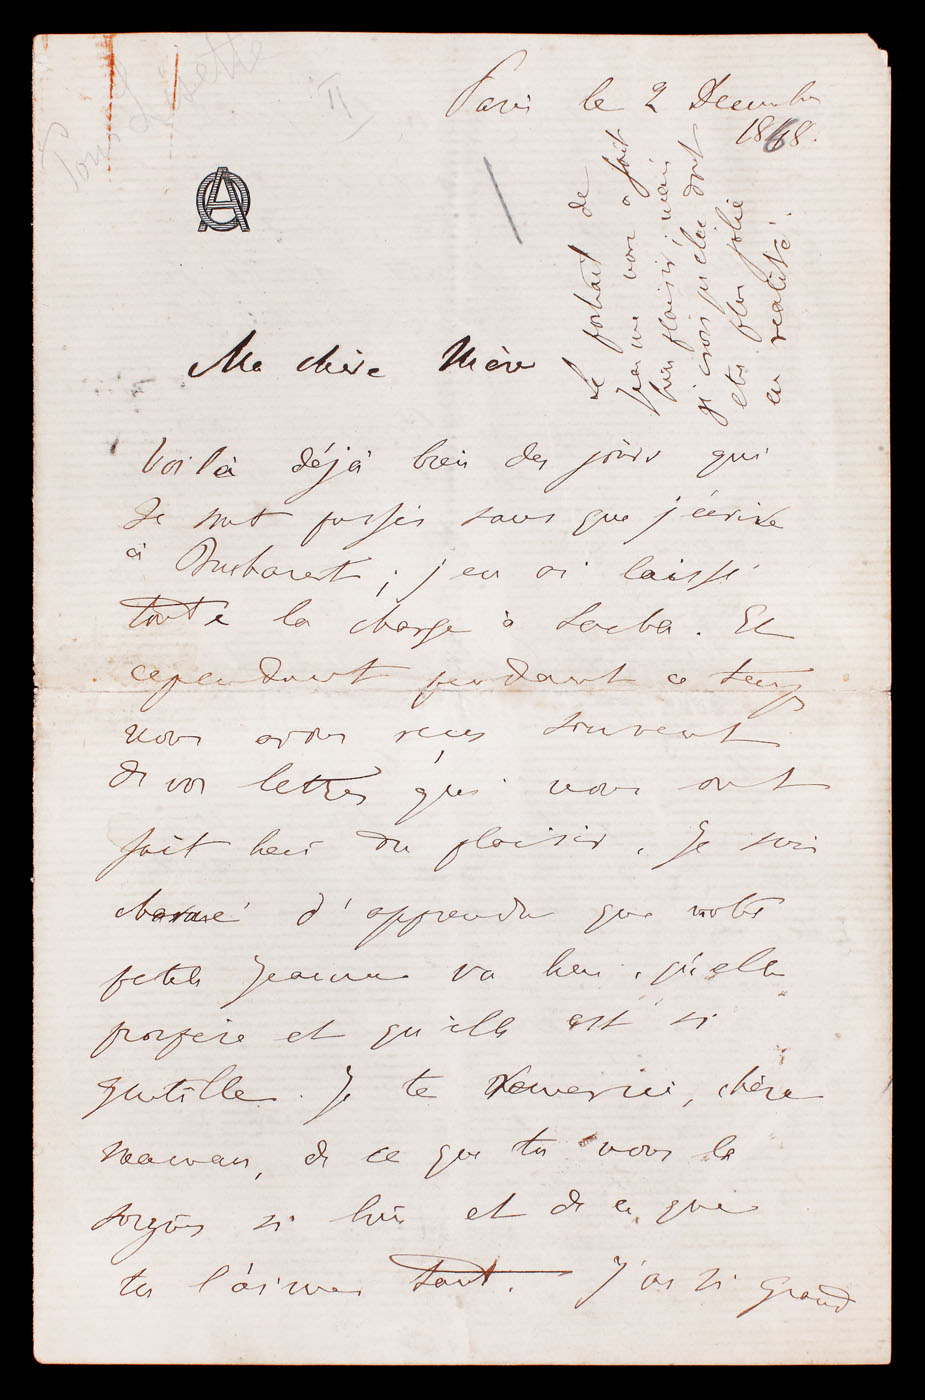 Pour Lisette
II
Paris le 2 Decembre
1868.
AO
Le portrait de
Jeanne nous a fait
bien plaisir, mais
je crois qu'elle doit
etre plus jolie
en realité.
Ma chère Mère
Voilà déjà bien des jours qui
se sont passés sans que j'écrive
à Bucharest ; j'en ai laissé
toute la charge à Sacha. Et
cependant pendant ce temps
nous avons reçu souvent
de vos lettres qui nous ont
fait bien du plaisir. Je suis
charmé d'apprendre que notre
petite Jeanne va bien, qu'elle
prospère et qu'elle est si
gentille. Je te remercie, chère
maman, de ce que tu nous la
soignes si bien et de ce que
tu l'aimes tant. J'ai si grand